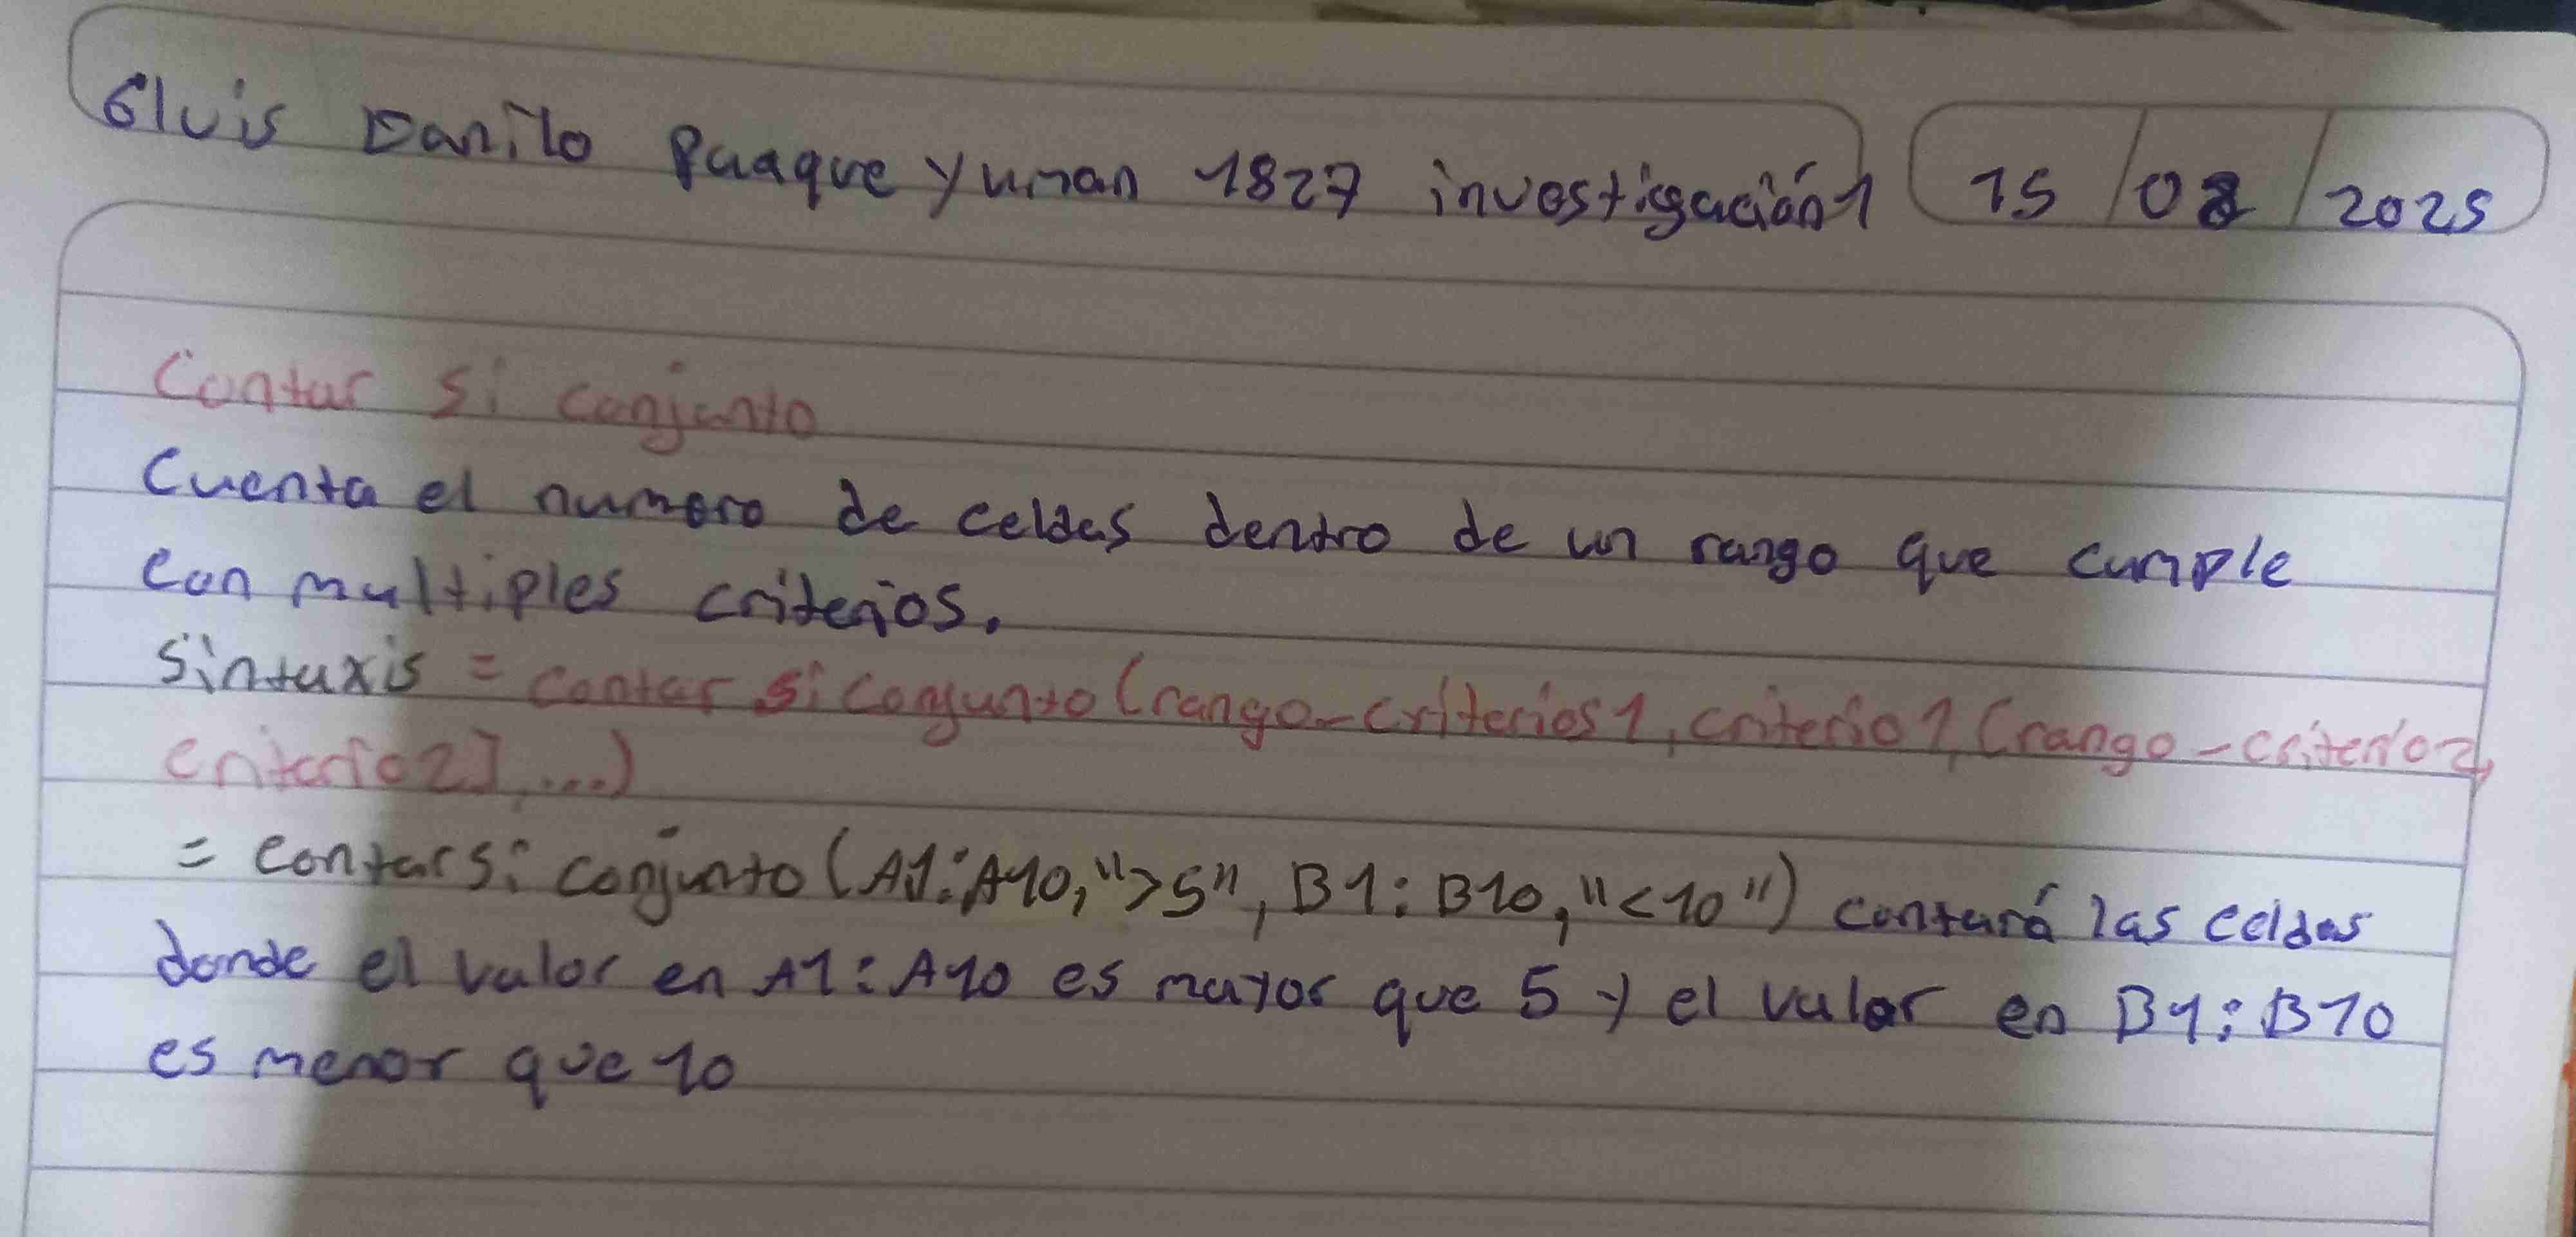 Elvis Danilo Puaque Yuman 1827 investigación 1 15/08/2025
Contar si conjunto
Cuenta el numero de celdas dentro de un rango que cumple
con multiples criterios.
Sintaxis = contar si conjunto (rango-criterios 1, criterio 1, (rango-criterio 2,
criterio 2], ...)
= contar si conjunto (A1:A10, ">5", B1:B10, "<10") contará las celdas
donde el valor en A1:A10 es mayor que 5 y el valor en B1:B10
es menor que 10